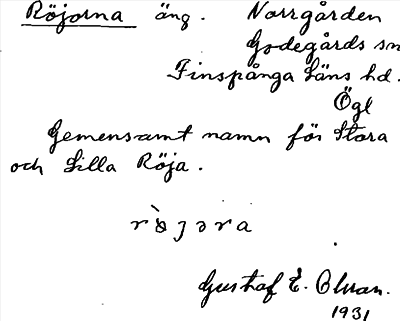 Röjorna äng. Norrgården
Godegårds sn
Finspånga läns hd.
Ögl
Gemensamt namn för Stora
och Lilla Röja.
Gustaf E.
1931